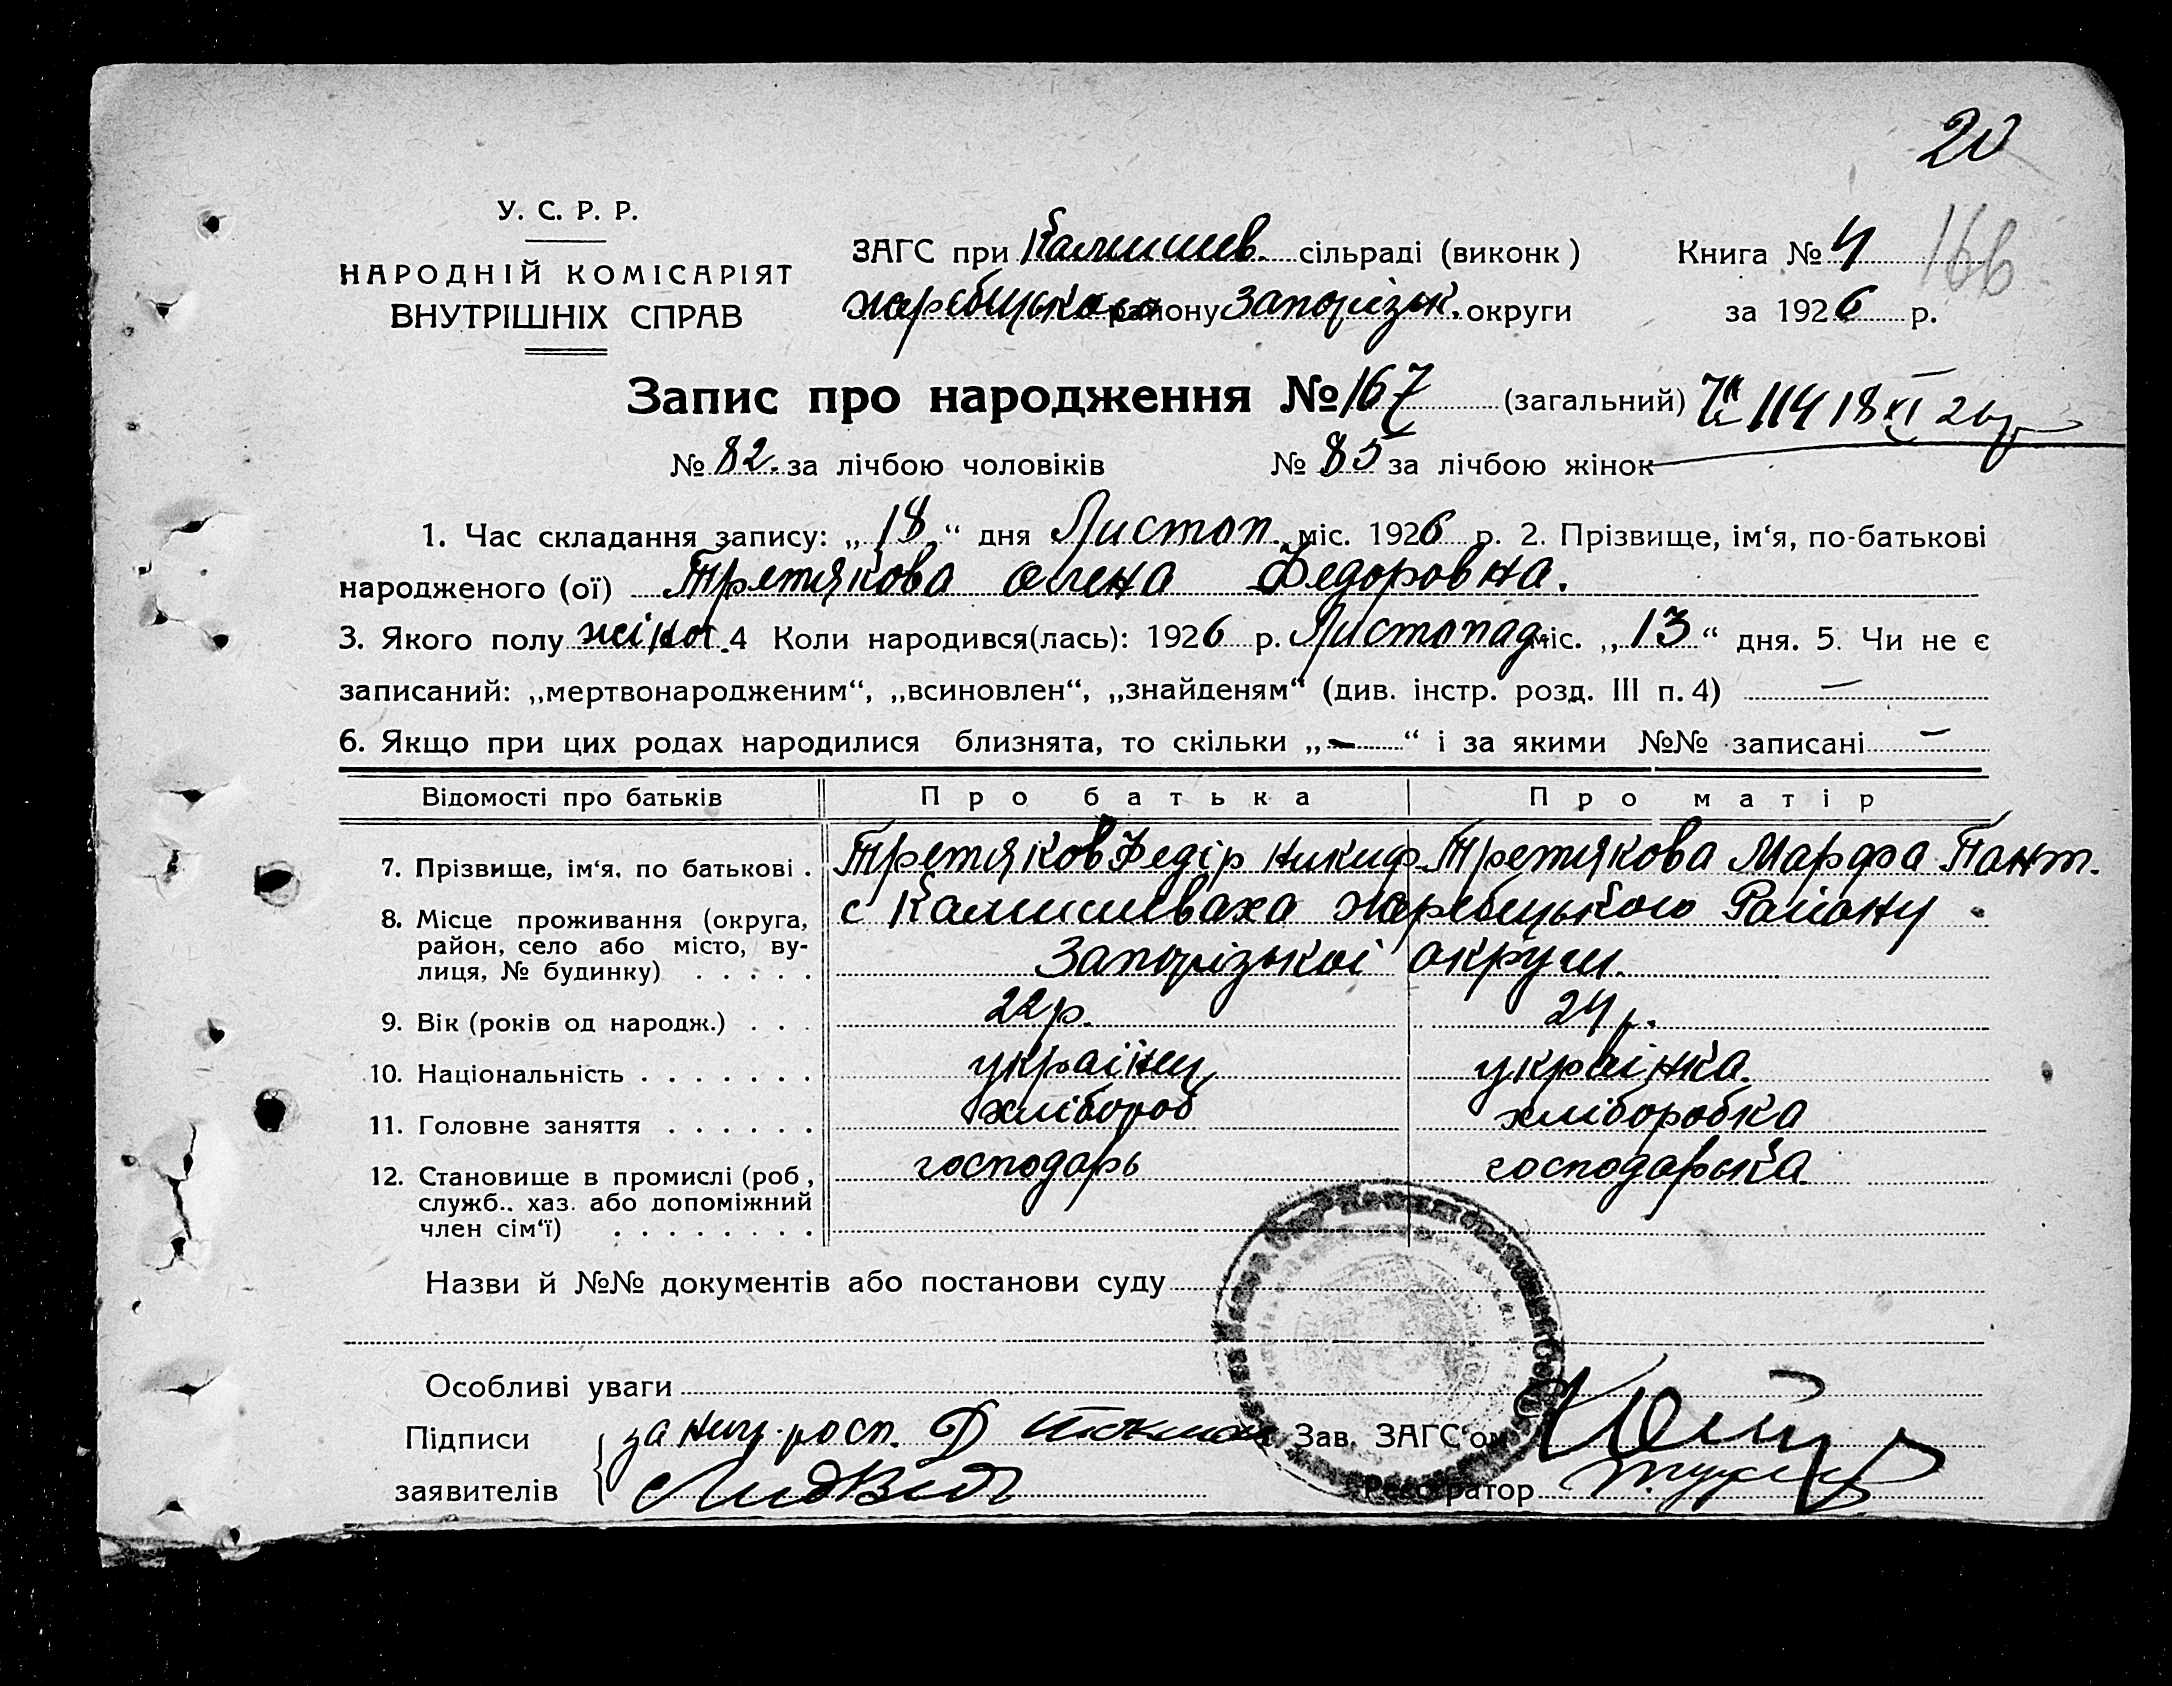 20
У. С. Р. Р.
НАРОДНІЙ КОМІСАРІЯТ
ВНУТРІШНІХ СПРАВ
ЗАГС при Камишев. сільраді (виконк)
Жеребецького району Запорізьк. округи
Книга № 4
166
за 1926 р.
Запис про народження № 167 (загальний) 114 18 XI 26 р
№ 82. за лічбою чоловіків № 85 за лічбою жінок
1. Час складання запису: „18“ дня Листоп. міс. 1926 р. 2. Прізвище, ім‘я, по-батькові
народженого (ої) Третякова Олена Федоровна.
3. Якого полу жіноч. 4 Коли народився(лась): 1926 р. Листопад. міс. „13“ дня. 5. Чи не є
записаний: „мертвонародженим“, „всиновлен“, „знайденям“ (див. інстр. розд. III п. 4) —
6. Якщо при цих родах народилися близнята, то скільки „—“ і за якими №№ записані —
Відомості про батьків Про батька Про матір
7. Прізвище, ім‘я, по батькові . Третяков Федір Никиф. Третякова Марфа Пант.
8. Місце проживання (округа, с Камишеваха Жеребецького Району
район, село або місто, ву-
лиця, № будинку) . . . . . Запорізької округи.
9. Вік (років од народж.) . . . 22 р. 24 р.
10. Національність . . . . . . . українец українка.
11. Головне заняття . . . . . . хлібороб хліборобка
12. Становище в промислі (роб, господарь господарька.
служб.. хаз. або допоміжний
член сім‘ї) . . . . . . . .
Назви й №№ документів або постанови суду
Особливі уваги
Підписи за розп. Д Зав. ЗАГС‘ом
заявителів Реєстратор